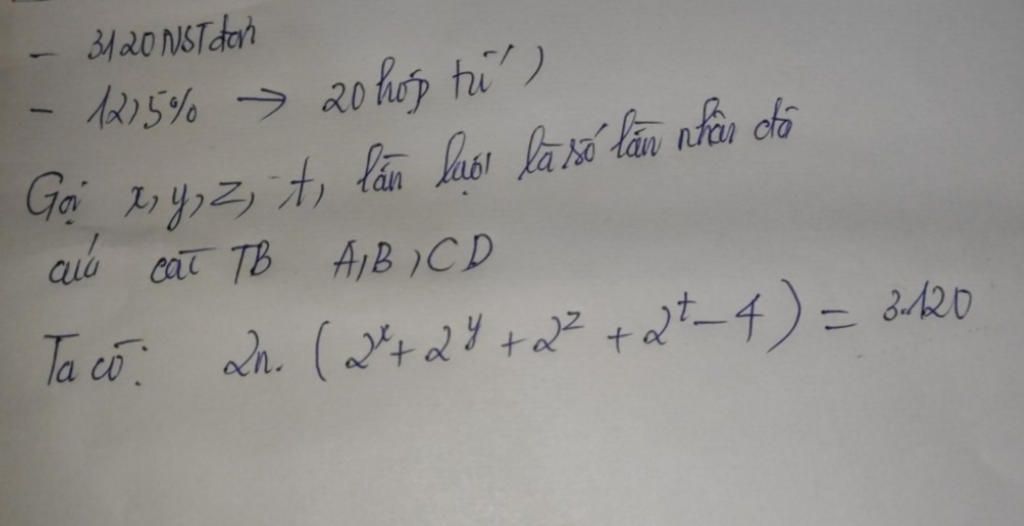 - 3120 NST đơn
- 12,5% → 20 hợp tử )
Gọi x, y, z, t, lần lượt là số lần nhân đô
của các TB A, B, C D
Ta có: 2n. ( 2^x + 2^y + 2^z + 2^t - 4 ) = 3.120